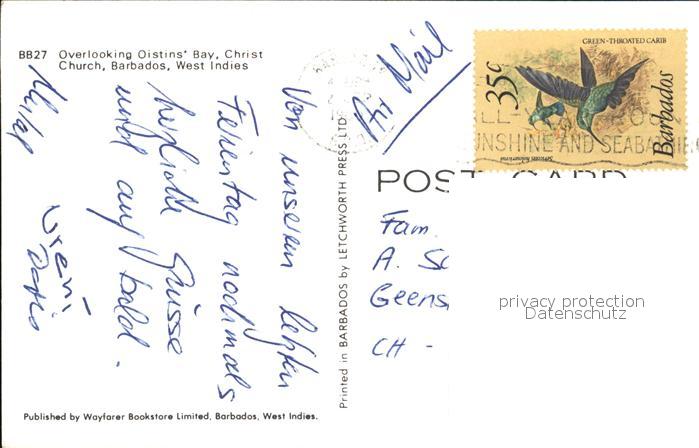 BB27 Overlooking Oistins' Bay, Christ
Church, Barbados, West Indies
Von unserem letzten
Ferientag nochmals
herzliche Grüsse
und auf bald.
Printed in BARBADOS by LETCHWORTH PRESS LTD
Air Mail
GREEN-THROATED CARIB
35c
Barbados
UNSHINE AND SEABATHIN
POST CARD
Fam.
A. Sc
Geens
CH -
privacy protection
Datenschutz
Published by Wayfarer Bookstore Limited, Barbados, West Indies.